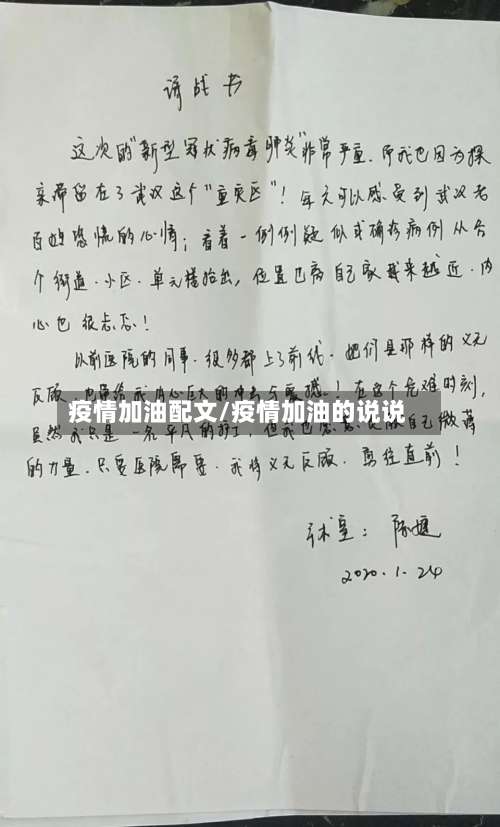 请战书
这次的"新型冠状病毒肺炎"非常严重.而我也因为探
亲滞留在了武汉这个"重灾区"！每天可以感受到武汉老
百姓恐慌的心情；看着一例例疑似或确诊病例从各
个街道.小区.单元楼抬出,位置也离自己家越来越近.内
心也很忐忑！
以前医院的同事.很多都上了前线.她们是那样的义无
反顾.也带给我内心巨大的冲击与震撼！在这个危难时刻,
疫情加油配文/疫情加油的说说
虽然我只是一名平凡的护士,但我也愿意贡献自己微薄
的力量.只要医院需要.我将义无反顾.勇往直前！
陈
2020.1.24